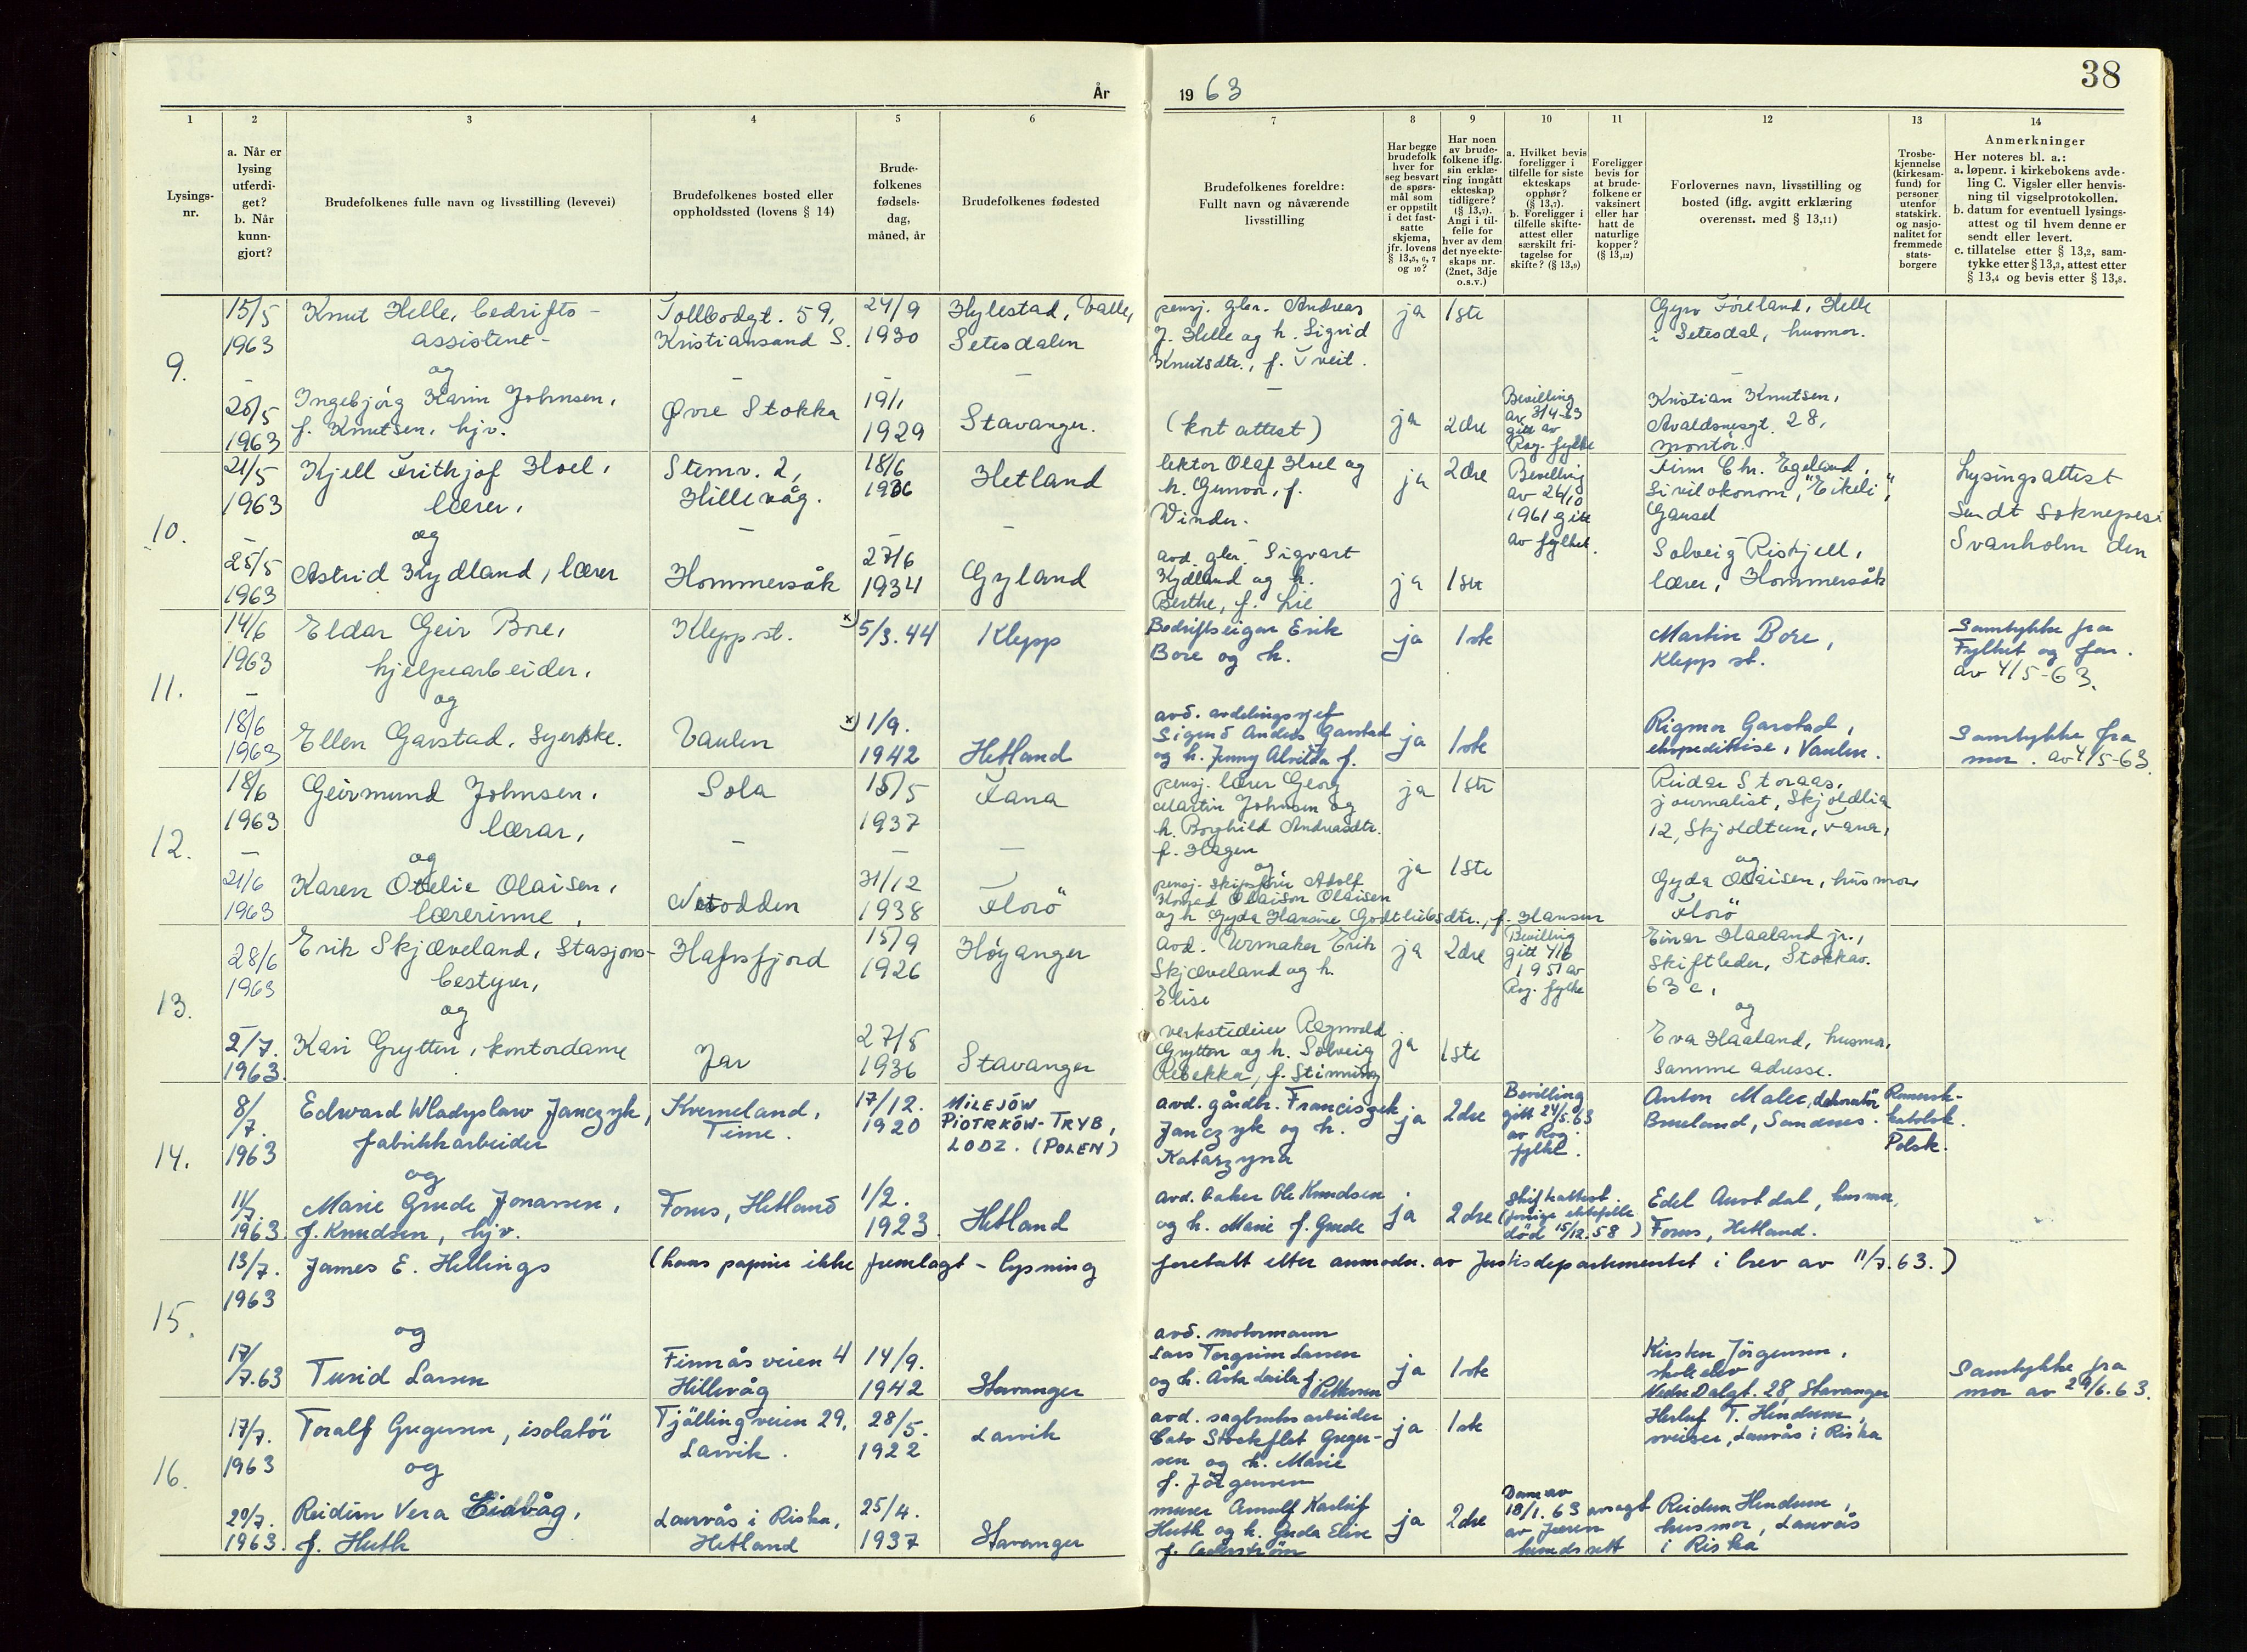 38
År
19 63
1
2
3
4
5
6
7
8
9
10
11
12
13
14
Lysings-
nr.
a. Når er
lysing
utferdi-
get?
b. Når
kunn-
gjort?
Brudefolkenes fulle navn og livsstilling (levevei)
Brudefolkenes bosted eller
oppholdssted (lovens § 14)
Brude-
folkenes
fødsels-
dag,
måned, år
Brudefolkenes fødested
Brudefolkenes foreldre:
Fullt navn og nåværende
livsstilling
Har begge
brudefolk
hver for
seg besvart
de spørs-
mål som
er oppstilt
i det fast-
satte
skjema,
jfr. lovens
§ 13,5, 6, 7
og 10?
Har noen
av brude-
folkene iflg.
sin erklæ-
ring inngått
ekteskap
tidligere?
(§ 13,7).
Angi i til-
felle for
hver av dem
det nye ekte-
skaps nr.
(2net, 3dje
o.s.v.)
a. Hvilket bevis
foreligger i
tilfelle for siste
ekteskaps
opphør?
(§ 13,7).
b. Foreligger i
tilfelle skifte-
attest eller
særskilt fri-
tagelse for
skifte? (§ 13,9)
Foreligger
bevis for
at brude-
folkene er
vaksinert
eller har
hatt de
naturlige
kopper?
(§ 13,12)
Forlovernes navn, livsstilling og
bosted (iflg. avgitt erklæring
overensst. med § 13,11)
Trosbe-
kjennelse
(kirkesam-
fund) for
personer
utenfor
statskirk.
og nasjo-
nalitet for
fremmede
stats-
borgere
Anmerkninger
Her noteres bl. a.:
a. løpenr. i kirkebokens avde-
ling C. Vigsler eller henvis-
ning til vigselprotokollen.
b. datum for eventuell lysings-
attest og til hvem denne er
sendt eller levert.
c. tillatelse etter § 13,2, sam-
tykke etter § 13,3, attest etter
§ 13,4 og bevis etter § 13,8.
9.
15/5
1963
-
25/5
1963
Knut Helle, bedrifts-
assistent -
og
Ingebjørg Karin Johnsen,
f. Knutsen, hjv.
Tollbodgt. 59,
Kristiansand S.
-
Øvre Stokka
24/9
1930
-
19/1
1929
Hylestad, Valle,
Setesdalen
-
Stavanger.
pensj. gbr. Andreas
J. Helle og h. Sigrid
Knutsdtr., f. Tveit.
-
(kort attest)
ja
1ste
ja
2dre
Bevilling
av 3/4-63
gitt av
Rog. fylke
Gyro Føreland, Helle
i Setesdal, husmor.
-
Kristian Knutsen,
Avaldsnesgt. 28,
montør.
10.
21/5
1963
-
25/5
1963
Kjell Frithjof Hoel,
lærer,
og
Astrid Kydland, lærer
Stemv. 2,
Hillevåg.
-
Hommersåk
18/6
1936
-
27/6
1934
Hetland
-
Gyland
lektor Olaf Hoel og
h. Gunvor, f.
Winder.
-
avd. gbr. Sigvart
Kydland og h.
Berthe, f. Lie
ja
2dre
ja
1ste
Bevilling
av 26/10
1961 gitt
av fylket.
Finn Chr. Egeland,
Siviløkonom, "Eikeli",
Gausel
-
Solveig Riskjell,
lærer, Hommersåk
Lysingsattest
Sendt soknepres
Svanholm den
11.
14/6
1963
-
18/6
1963
Eldar Geir Bore,
hjelpearbeider,
og
Ellen Garstad, syerske.
Klepp st.
Vaulen
x) 5/3. 44
x) 1/9.
1942
Klepp
Hetland
Bedriftseigar Erik
Bore og h.
avd. avdelingssjef
Sigurd Anders Garstad
og h. Jenny Alvilda f.
ja
1ste
ja
1ste
Martin Bore,
Klepp st.
Rigmor Garstad,
ekspeditrise, Vaulen.
Samtykke fra
Fylket og far.
av 4/5-63.
Samtykke fra
mor. av 4/5-63.
12.
18/6
1963
-
21/6
1963
Geirmund Johnsen,
lærar,
og
Karen Otelie Olaisen,
lærerinne,
Sola
-
Notodden
15/5
1937
-
31/12
1938
Fana
-
Florö
pensj. lærer Georg
Martin Johnsen og
h. Borghild Andreasdtr.
f. Hagen
og
pensj. skipsfører Adolf
Konrad Olaison Olaisen
og h. Gyda Hansine Godtliebsdtr., f. Hansen
ja
1ste
ja
1ste
Reidar Storaas,
journalist, Skjoldlia
12, Skjoldtun, Fana,
og
Gyda Olaisen, husmor,
Florö
13.
28/6
1963
-
2/7.
1963.
Erik Skjæveland, Stasjons-
bestyrer,
og
Kari Grytten, kontordame
Hafrsfjord
Jar
15/9
1926
27/8
1936
Høyanger
Stavanger
avd. Urmaker Erik
Skjæveland og h.
Elise
verkstedeier Ragnvald
Grytten og h. Solveig
Rebekka, f. Stimming
ja
2dre
ja
1ste
Bevilling
gitt 4/6
1951 av
Rog. fylke
Einar Haaland jr.,
skiftleder, Stokkav.
63 c,
og
Eva Haaland, husmor,
samme adresse.
14.
8/
7.
1963
11/
7.
1963
Edward Wladyslaw Janczyk,
fabrikkarbeider
og
Marie Grude Jonassen,
f. Knudsen, hjv.
Kverneland,
Time.
Forus, Hetland
17/12.
1920
1/2.
1923.
MILEJÓW
PIOTRKÓW-TRYB,
LODZ. (POLEN)
Hetland
avd. gårdbr. Franciszek
Janczyk og h.
Katarzyna
avd. baker Ole Knudsen
og h. Marie f. Grude
ja
2dre
ja
2dre
Bevilling
gitt 24/5.63
av Rog.
fylke.
Skifteattest.
(forrige ektefelle
død 15/12.58)
Anton Malec, dekoratör
Brueland, Sandnes.
Edel Austdal, husmor,
Forus, Hetland.
Romersk-
katolsk.
Polsk.
15.
13/7.
1963
17/
7.63
James E. Hellings
og
Turid Larsen
(hans papirer ikke fremlagt - lysning foretatt etter anmodn. av Justisdepartementet i brev av 11/7.63.)
Finnåsveien 4
Hillevåg
14/9.
1942
Stavanger
avd. motormann
Lars Torgrim Larsen
og h. Åsta Laila f.
Pettersen
ja
1ste
Kirsten Jörgensen,
skoleelev
Nedre Dalgt. 28, Stavanger
Samtykke fra
mor av 29/6.63.
16.
17/7.
1963
20/7.
1963.
Toralf Gregersen, isolatör
og
Reidun Vera Eidvåg,
f. Huth
Tjöllingveien 29,
Larvik.
Lauvås i Riska,
Hetland
28/5.
1922
25/4.
1937
Larvik
Stavanger
avd. sagbruksarbeider
Cato Stockflet Greger-
sen og h. Marie
f. Jörgensen
murer Arnulf Karluf
Huth og h. Gerda Elise
f. Cederström
ja
1ste
ja
2dre
Dom av
18/1. 63 avsagt
av Jæren
herredsrett
Herluf T. Hindum,
sveiser, Lauvås i Riska
Reidun Hindum,
husmor, Lauvås
i Riska